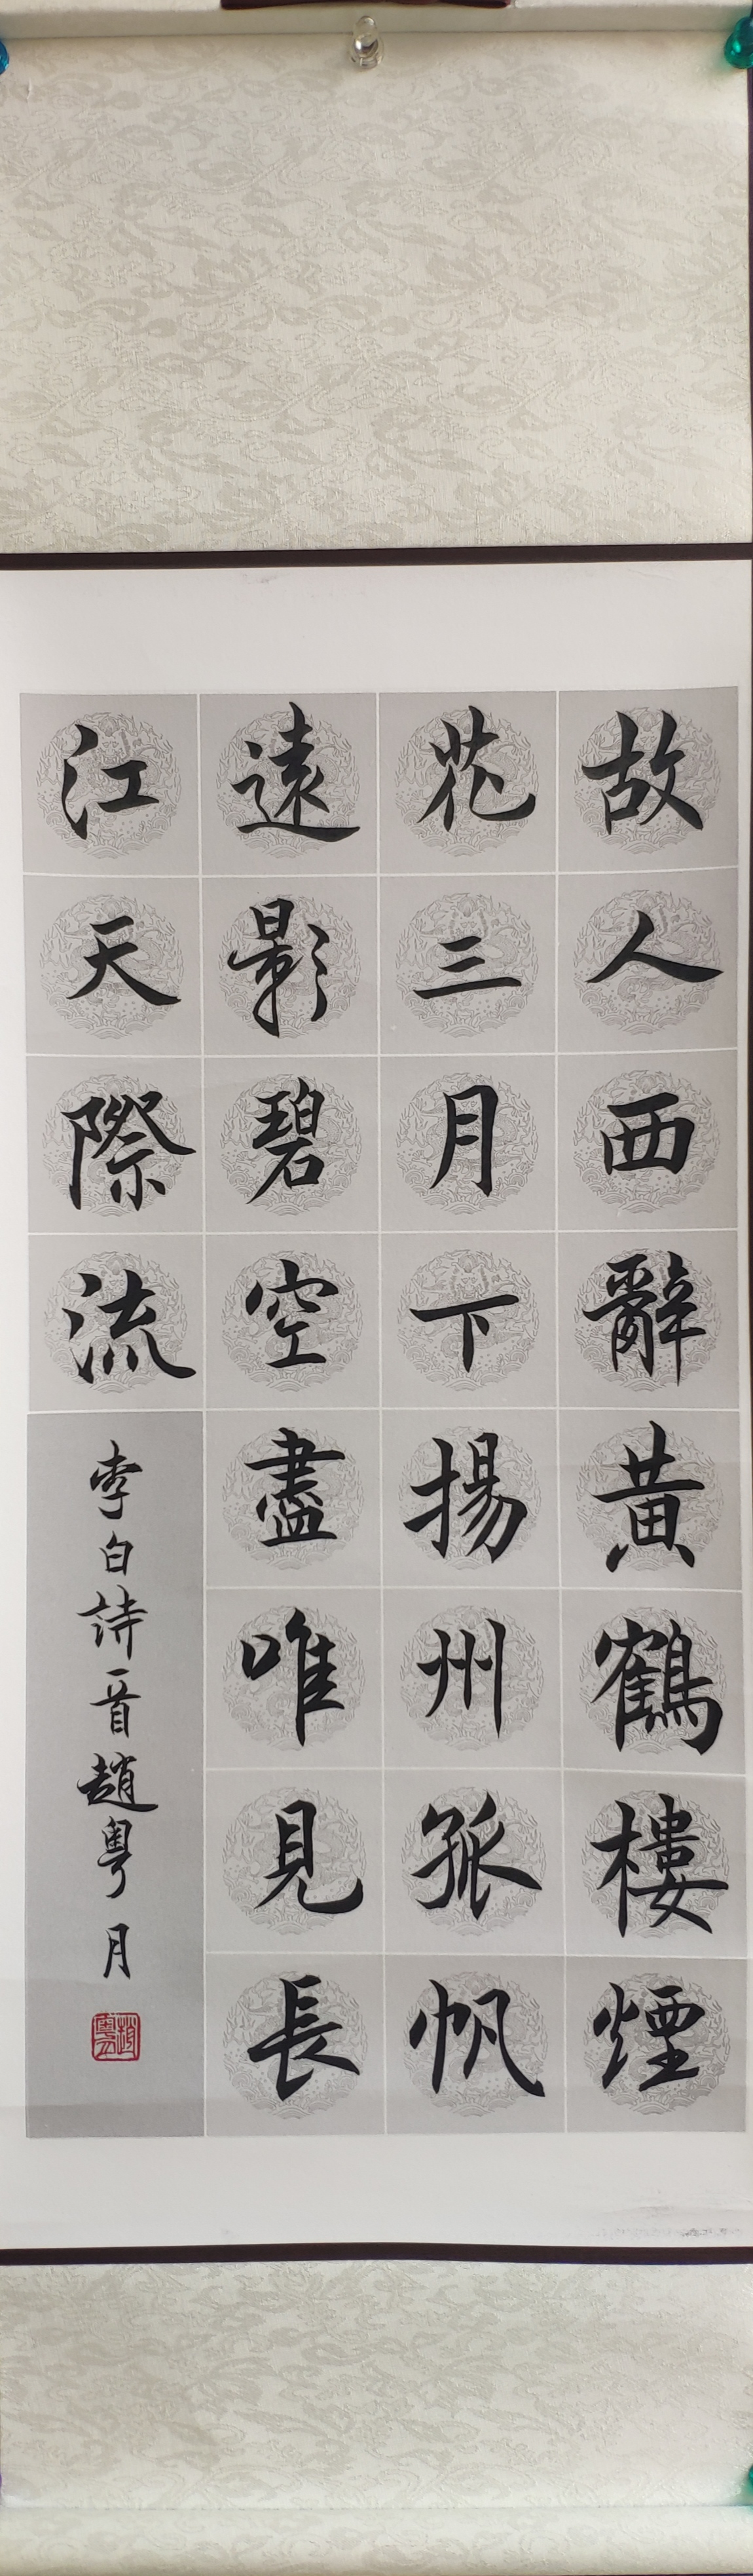 故人西辭黃鶴樓煙
花三月下揚州孤帆
遠影碧空盡唯見長
江天際流
李白詩一首趙粵月